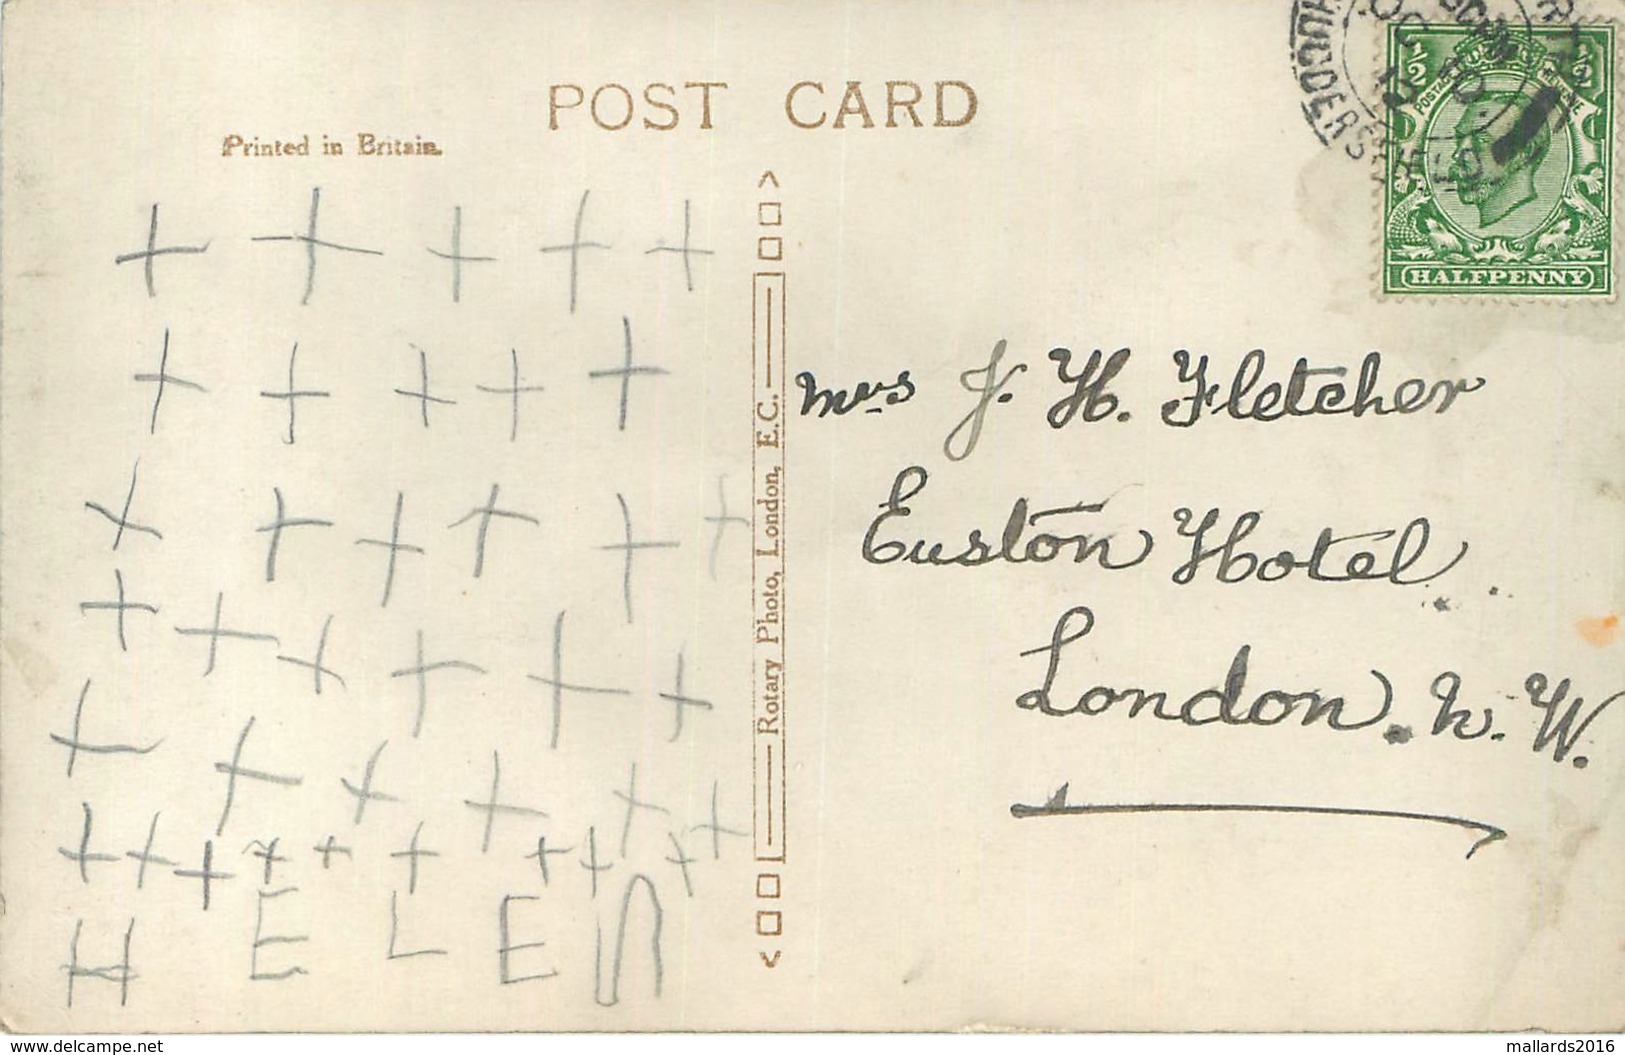 POST CARD
Printed in Britain.
HUDDERSFIELD
1/2 1/2
POSTAGE REVENUE
HALFPENNY
Mrs J. H. Fletcher
Euston Hotel
London. N. W.
Rotary Photo, London, E.C.
+ + + + +
+ + + + +
+ + + + + +
+ + + + + +
+ + + + + +
+ + + + + + + + + +
HELEN
www.delcampe.net
mallards2016